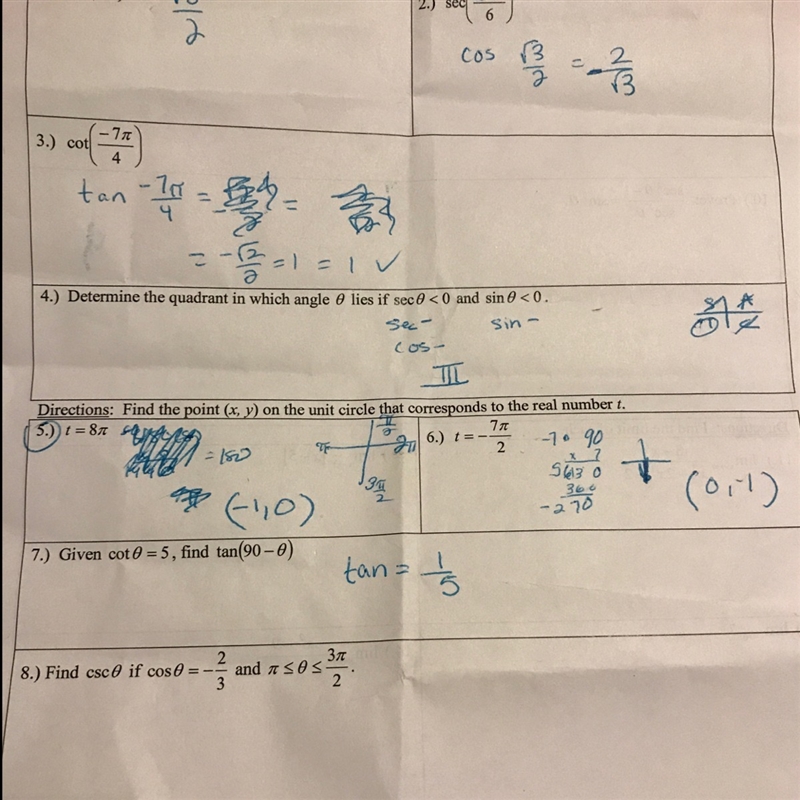 2
2.) sec( 6 )
cos √3/2 = -2/√3
3.) cot(-7π/4)
tan -7π/4 =
= -√2/2 = 1 = 1 ✓
4.) Determine the quadrant in which angle θ lies if sec θ < 0 and sin θ < 0.
sec - sin -
cos -
III
S A
T C
Directions: Find the point (x, y) on the unit circle that corresponds to the real number t.
5.) t = 8π
= 180
π/2
π 2π
3π/2
(-1, 0)
6.) t = -7π/2
-7 · 90
x 7
630
360
-270
(0, -1)
7.) Given cot θ = 5, find tan(90 - θ)
tan = 1/5
8.) Find csc θ if cos θ = -2/3 and π ≤ θ ≤ 3π/2.